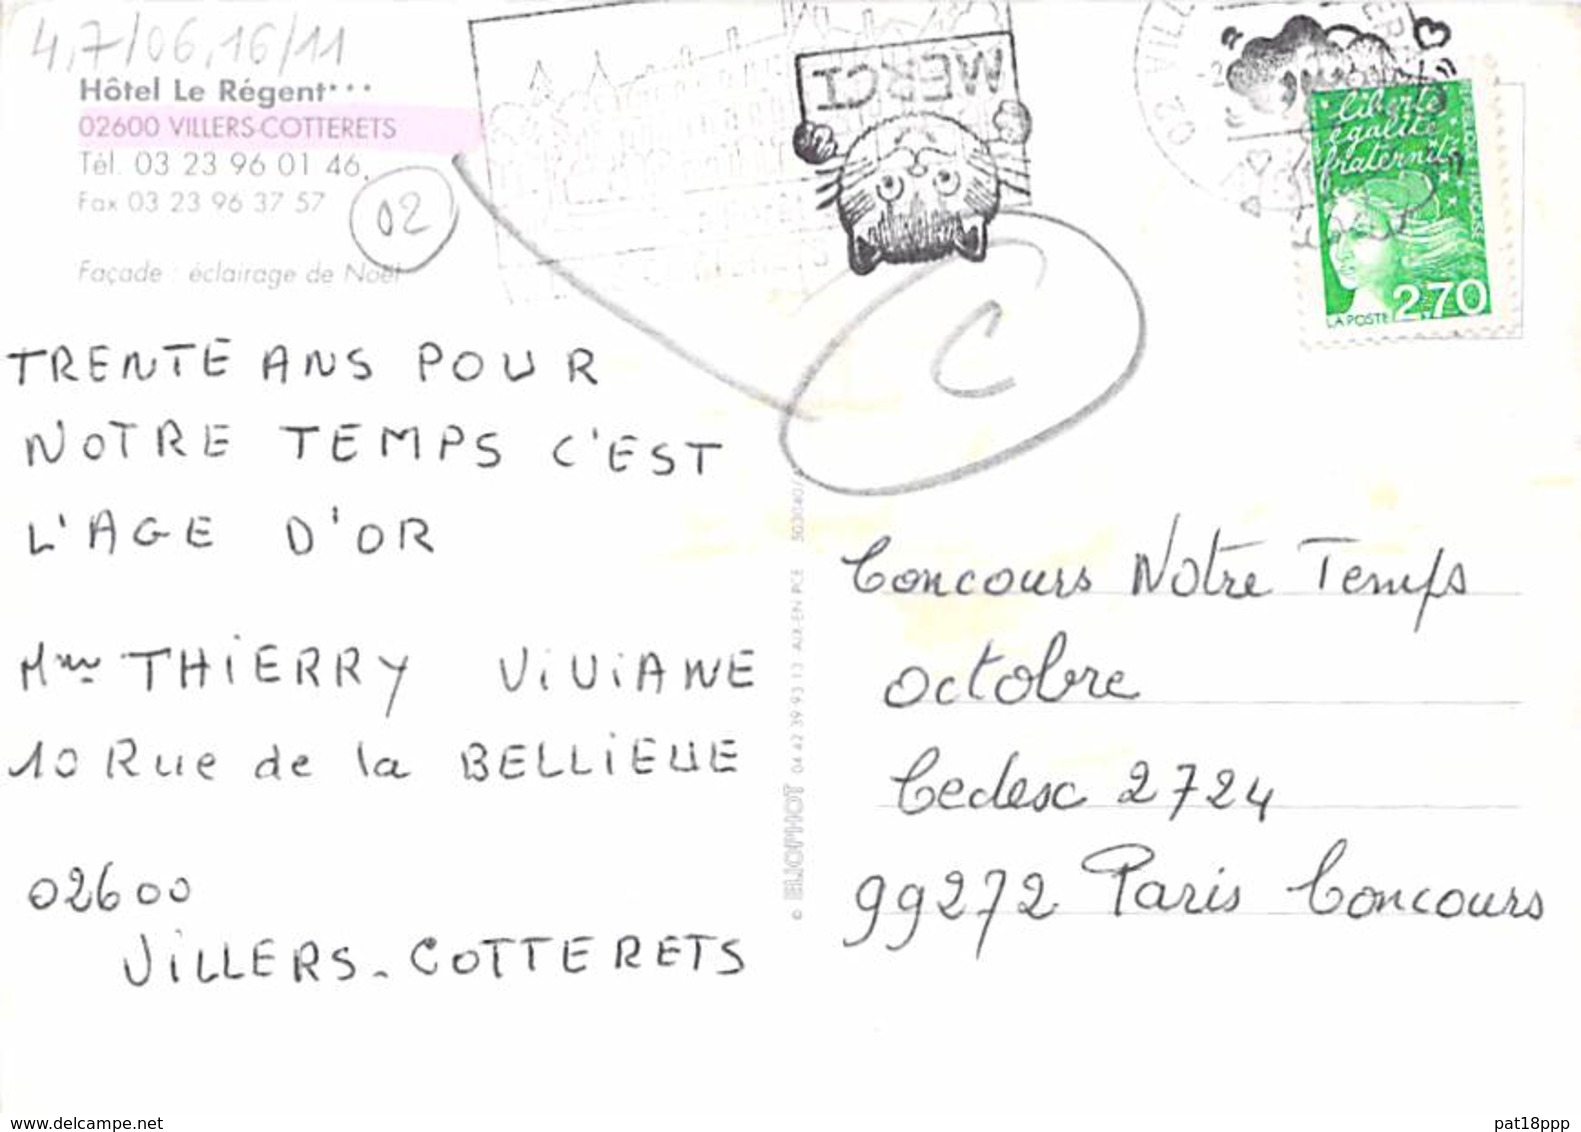 4,7/06,16/11
Hôtel Le Régent***
02600 VILLERS-COTTERETS
Tél. 03 23 96 01 46
Fax 03 23 96 37 57
02
Façade : éclairage de Noël
MERCI
02 VILL
liberté
égalité
fraternité
RÉPUBLIQUE FRANÇAISE
2,70
LA POSTE
C
TRENTE ANS POUR
NOTRE TEMPS C'EST
L'AGE D'OR
Mme THIERRY VIVIANE
10 Rue de la BELLIEUE
02600
VILLERS-COTTERETS
© ELIOPHOT 04 42 39 93 13 AIX-EN-PCE
Concours Notre Temps
octobre
Cedex 2724
99272 Paris Concours
www.delcampe.net
pat18ppp